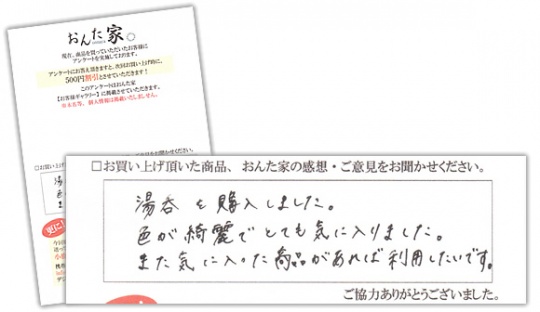 おんた家。
現在、商品を買っていただいたお客様に
アンケートを実施しております。
アンケートにお答え頂きますと、次回お買い上げ時に、
500円割引とさせていただきます!
このアンケートはおんた家
【お客様ギャラリー】に掲載させていただきます。
※お名前、個人情報は掲載いたしません。
をお聞かせください。
□お買い上げ頂
湯
色
ま
更に!
□お買い上げ頂いた商品、おんた家の感想・ご意見をお聞かせください。
湯呑を購入しました。
色が綺麗でとても気に入りました。
また気に入った商品があれば利用したいです。
ご協力ありがとうございました。